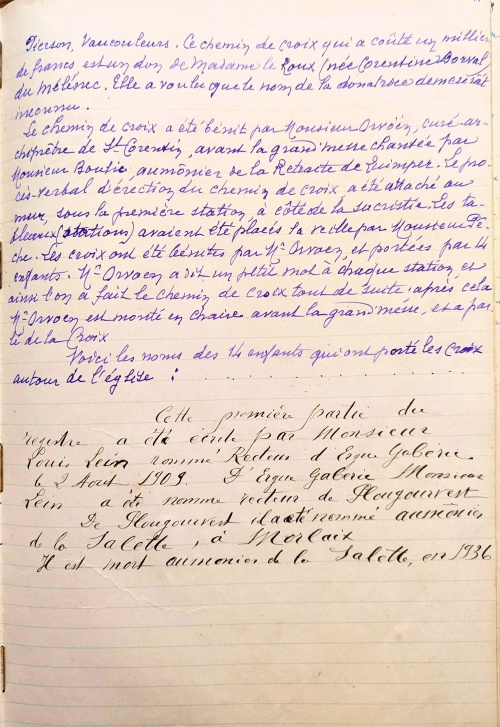 Pierson, Vaucouleurs. Ce chemin de croix qui a coûté un millier
de francs est un don de Madame le Roux (née Corentine Borval
du Mélénec. Elle a voulu que le nom de la donatrice demeurât
inconnu.
Le chemin de croix a été bénit par Monsieur Orvoën, curé-ar-
chiprêtre de St Corentin, avant la grand'messe chantée par
Monsieur Boulic, aumônier de la Retraite de Quimper. Le pro-
cès-verbal d'érection du chemin de croix, a été attaché au
mur, sous la première station, à côté de la sacristie. Les ta-
bleaux (stations) avaient été placés la veille par Monsieur Pê-
che. Les croix ont été bénites par Mr Orvoen, et portées par 14
enfants. Mr Orvoen a dit un petit mot à chaque station, et
ainsi l'on a fait le chemin de croix tout de suite. après cela
Mr Orvoen est monté en chaire avant la grand'messe, et a par-
lé de la Croix
Voici les noms des 14 enfants qui ont porté les croix
autour de l'église : . . . . . . . . . . . . . . .
Cette première partie du
registre a été écrite par Monsieur
Louis Lein nommé Recteur d'Ergue Gabéric
le 2 Aout 1909. D'Ergue Gabéric Monsieur
Lein a été nommé recteur de Plougourvest
De Plougourvest il a été nommé aumônier
de la Salette, à Morlaix
Il est mort aumonier de la Salette, en 1936